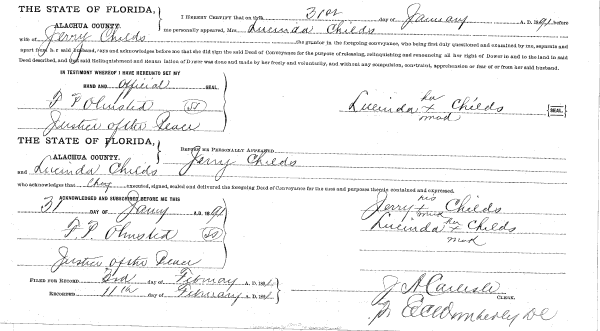 THE STATE OF FLORIDA,
ALACHUA COUNTY.
I HEREBY CERTIFY that on this 31st day of January A. D. 1891 before
me personally appeared, Mrs Lucinda Childs
wife of Jerry Childs the grantor in the foregoing conveyance, who being first duly questioned and examined by me, separate and
apart from her said husband, says and acknowledges before me that she did sign the said Deed of Conveyance for the purpose of releasing, relinquishing and renouncing all her right of Dower in and to the land in said
Deed described, and that said Relinquishment and Renunciation of Dower was done and made by her freely and voluntarily, and without any compulsion, constraint, apprehension or fear of or from her said husband.
IN TESTIMONY WHEREOF I HAVE HEREUNTO SET MY
HAND AND official SEAL
F. P. Olmsted
Justice of the Peace
Lucinda her x mad Childs SEAL
THE STATE OF FLORIDA,
ALACHUA COUNTY.
BEFORE ME PERSONALLY APPEARED Jerry Childs
and Lucinda Childs
who acknowledge that they executed, signed, sealed and delivered the foregoing Deed of Conveyance for the uses and purposes therein contained and expressed.
ACKNOWLEDGED AND SUBSCRIBED BEFORE ME THIS
31 DAY OF Jany A. D. 1891
F. P. Olmsted
Justice of the Peace
Jerry his x mad Childs
Lucinda her x mad Childs
FILED FOR RECORD 3rd day of Febuary A. D. 1891
RECORDED 11th day of Febuary A. D. 1891
J A Carlisle
CLERK.
pr E C Wimberly DC